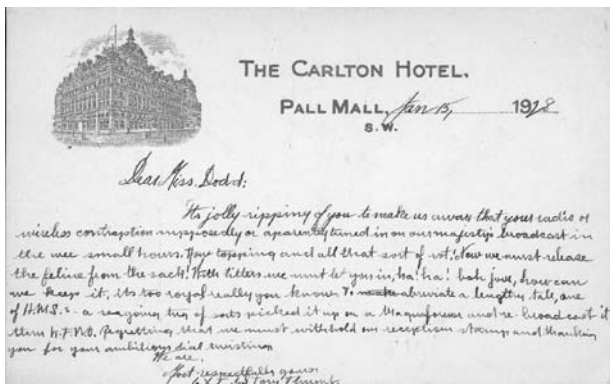 THE CARLTON HOTEL.
PALL MALL, Jan 15, 1928
S.W.
Dear Miss Dodd:
Its jolly ripping of you to make us aware that your radio or
wireless contraption supposedly or aparently tuned in on our majestys broadcast in
the wee small hours. How topping and all that sort of rot! Now we must release
the feline from the sack! With titters we must let you in, ha! ha! bah jove, how can
we keep it, its too royal really you know. To abreviate a lengthy tale, one
of H.M.S.'s - a rangoing of sorts picked it up on a Magnavox and re-broadcast it
thru Regretting, that we must withhold our reception stamp and thanking
you for your ambitious dial twisting
We are,
Most respectfully yours